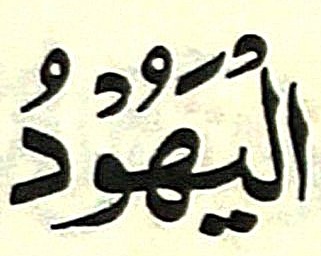 الْيَهُوْدُ